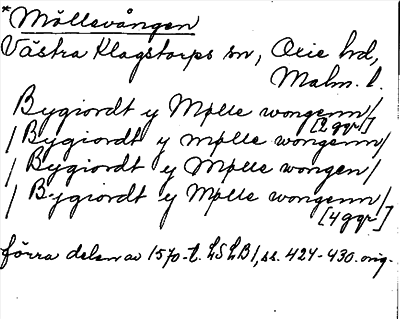 *Möllevången
Västra Klagstorps sn, Oxie hd,
Malm. l.
Bygiordt y Mølle wongenn/
[2 ggr]
/Bygiordt y mølle wongenn/
/Bygiordt y Mølle wongen/
/Bygiordt y Mølle wongenn/
[4 ggr]
förra delen av 1570-t. LSLB1, ss. 424-430. orig.